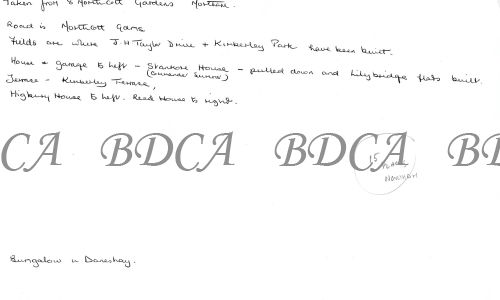 Taken from 8 Northcott Gardens Northam.
Road is Northcott Gdns
Fields are where J.H Taylor Drive + Kimberley Park have been built.
House & garage to left - House - pulled down and Lilybridge flats built.
Terrace - Kimberley Terrace,
Highbury House to left. Read House to right.
BDCA BDCA BDCA
15
PLACE
NORTHAM
Bungalow is Daneshay.